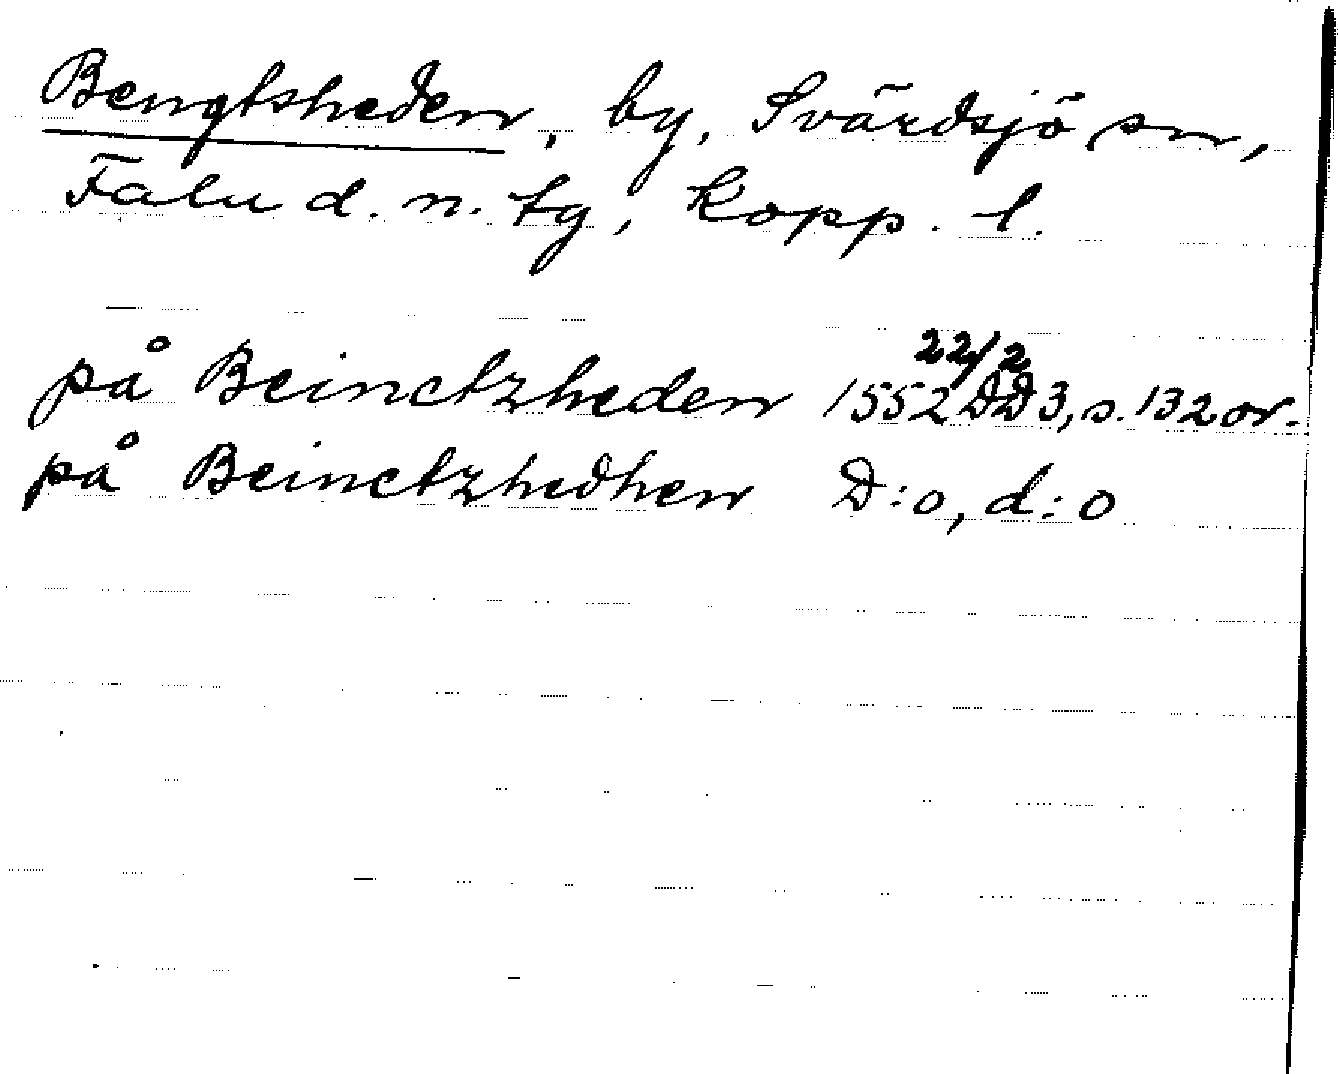 Bengtsheden, by, Svärdsjö sn,
Falu d. n. tg, Kopp. l.
på Beinctzheden 1552 22/2 DD 3, s. 132 or.
på Beinctzhedhen D:o, d:o